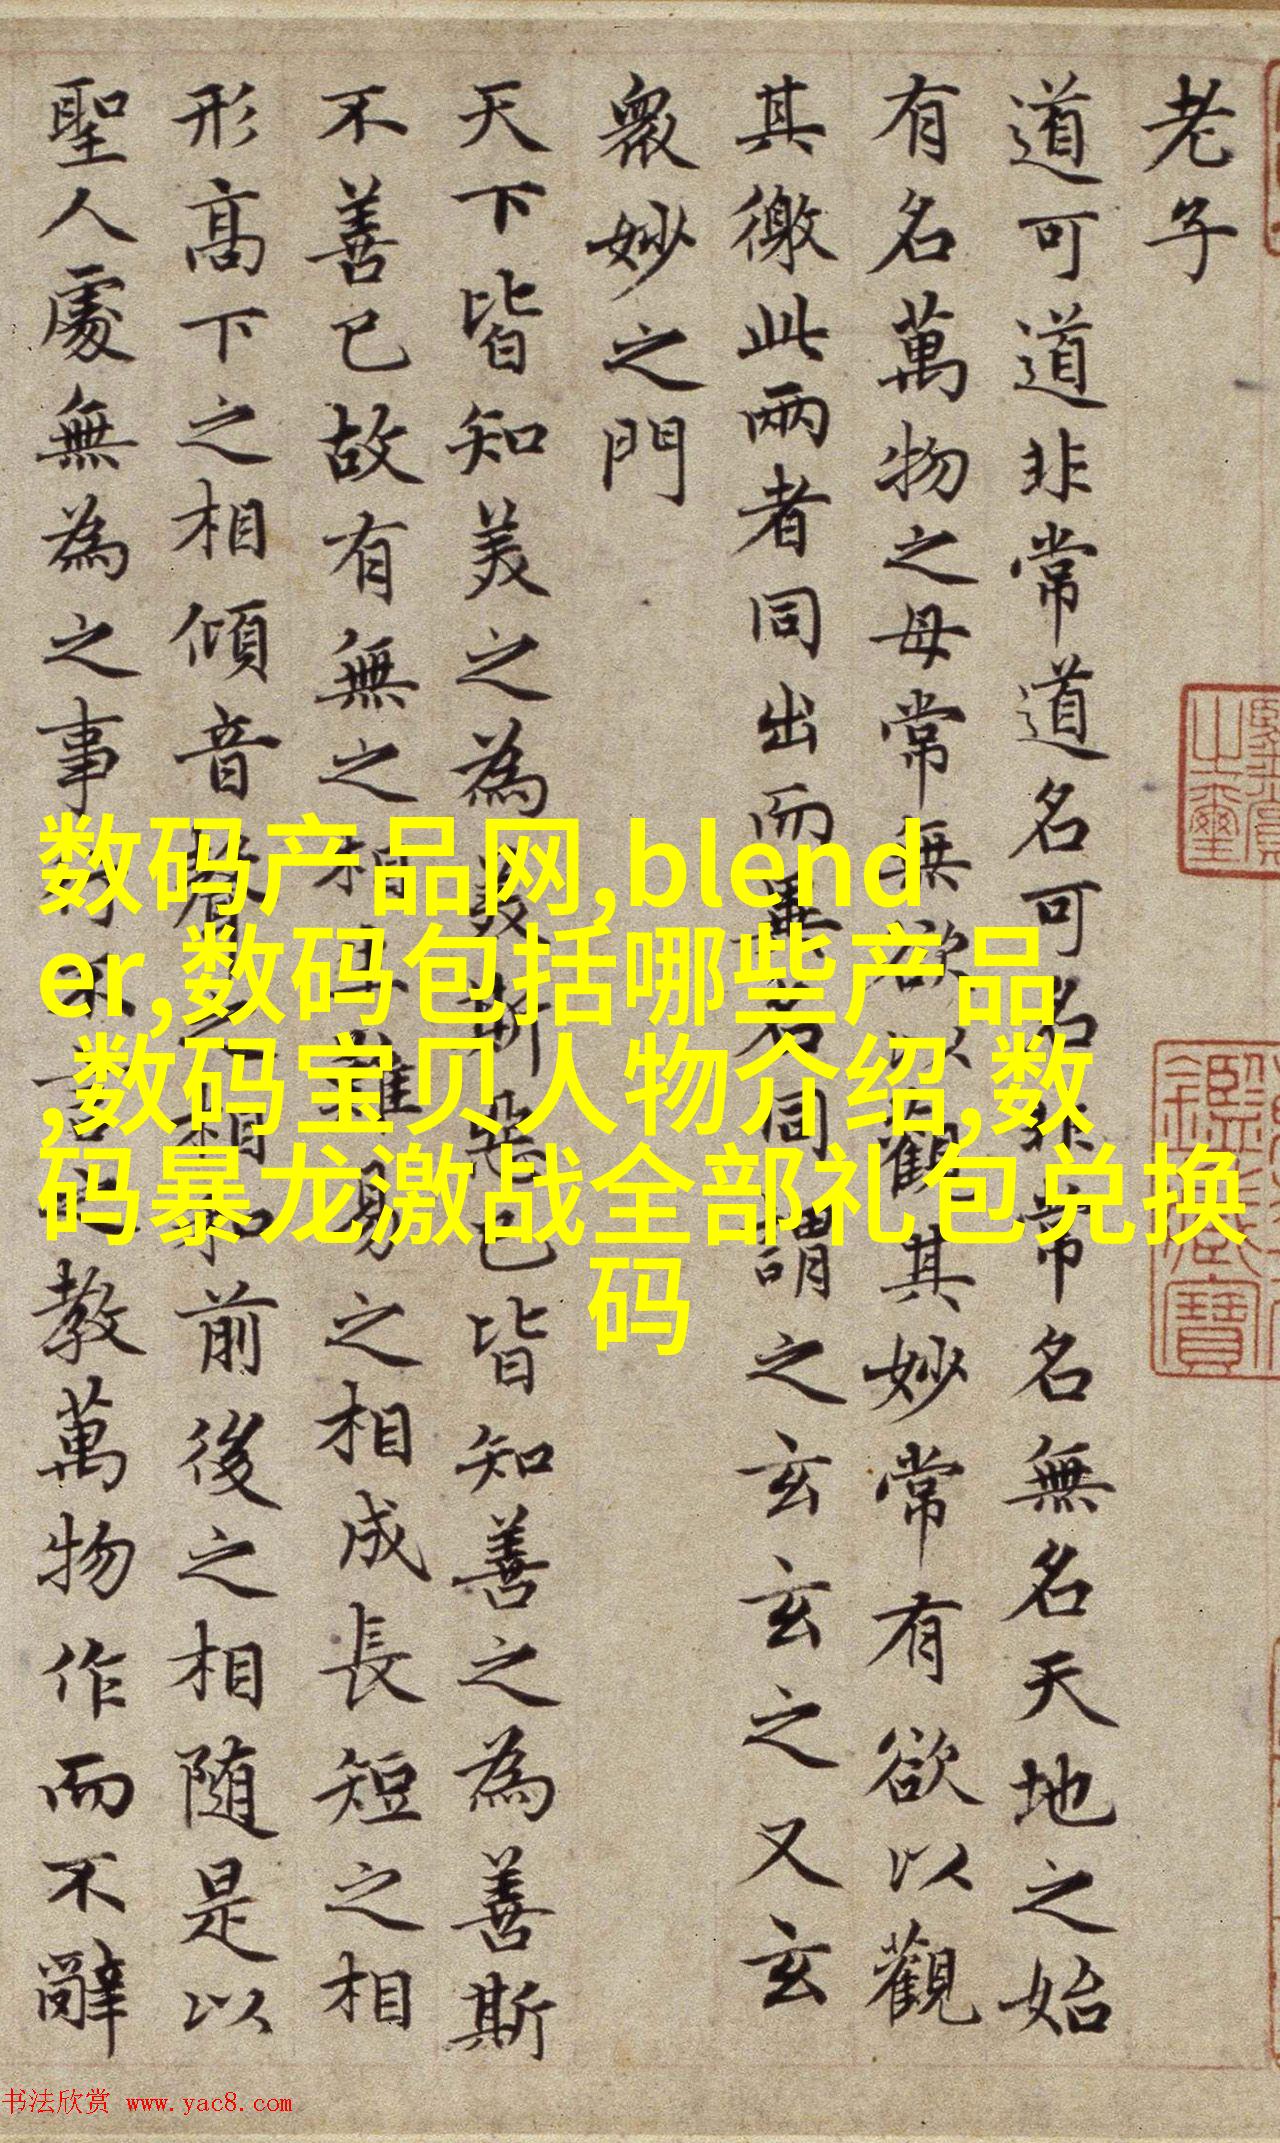 老子
道可道非常道名可名非常名無名天地之始
有名萬物之母常無欲以觀其妙常有欲以觀
其徼此兩者同出而異名同謂之玄玄之又玄
衆妙之門
天下皆知美之為美斯惡已皆知善之為善斯
不善已故有無之相生難易之相成長短之相
形高下之相傾音聲之相和前後之相随是以
聖人處無為之事行不言之教萬物作而不辭
数码产品网,blend
er,数码包括哪些产品
,数码宝贝人物介绍,数
码暴龙激战全部礼包兑换
码
书法欣赏 www.yac8.com